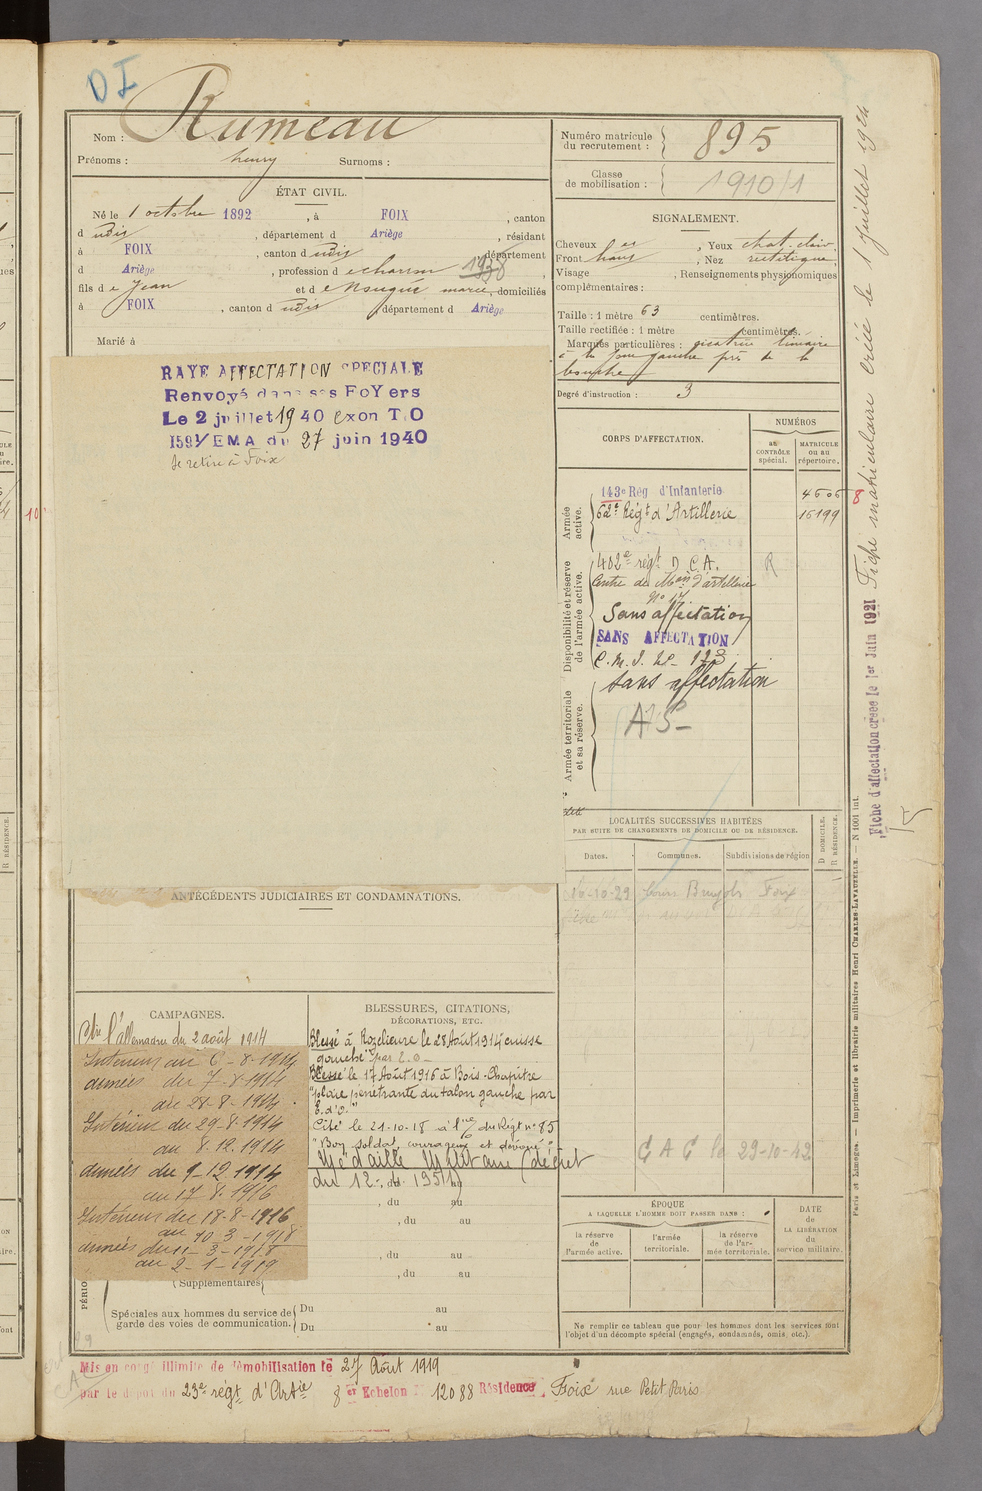 D I
Nom : Rumeau
Prénoms : henry Surnoms :
ÉTAT CIVIL.
Né le 1 octobre 1892, à FOIX, canton
d udis, département d Ariège, résidant
à FOIX, canton d udis, département
d Ariège, profession d e charron 1938
fils d e Jean et d e marie, domiciliés
à FOIX, canton d udis département d Ariège
Marié à
RAYE AFFECTATION SPECIALE
Renvoyé dans ses FoYers
Le 2 juillet 1940 exon T O
159 1/EMA du 27 juin 1940
Se retire à Foix
ANTÉCÉDENTS JUDICIAIRES ET CONDAMNATIONS.
CAMPAGNES.
Ctre l'allemagne du 2 août 1914
Intérieur au 6-8-1914
armées du 7-8-1914
au 28-8-1914.
Intérieur du 29-8-1914
au 8.12.1914
armées du 9-12 1914
au 17 8. 1916
Intérieur du 18-8-1916
au 10-3-1918
armées du 11-3-1918
au 2-1-1919
Supplémentaires
Spéciales aux hommes du service de
garde des voies de communication.
Du au
Du au
BLESSURES, CITATIONS,
DÉCORATIONS, ETC.
Blessé à Rozelieure le 28 Août 1914 cuisse
gauche par E.O-
Blessé le 17 Août 1916 à Bois-Chapitre
"plaie pénétrante du talon gauche par
E.d'O."
Cité le 21-10-18 à l'ordre du Régt n° 85
"Bon soldat, courageux et dévoué"
Médaille Militaire (décret
du 12. 1951)
, du au
, du au
, du au
, du au
Numéro matricule
du recrutement : 895
Classe
de mobilisation : 1910/1
SIGNALEMENT.
Cheveux, Yeux chat. clair
Front haut, Nez rectiligne
Visage, Renseignements physionomiques
complémentaires :
Taille : 1 mètre 63 centimètres.
Taille rectifiée : 1 mètre centimètres.
Marques particulières : cicatrice linéaire
à la joue gauche près de la
bouche
Degré d'instruction : 3
CORPS D'AFFECTATION.
NUMÉROS
au
CONTRÔLE
spécial.
MATRICULE
ou au
répertoire.
Armée
active.
143e Rég d'Infanterie 4606
62e Régt d'Artillerie 16199
Disponibilité et réserve
de l'armée active.
402e régt D C.A. R
Centre de d'artillerie
N° 17
Sans affectation
SANS AFFECTATION
C.M.I. N°- 173
Sans affectation
Armée territoriale
et sa réserve.
AS-
LOCALITÉS SUCCESSIVES HABITÉES
PAR SUITE DE CHANGEMENTS DE DOMICILE OU DE RÉSIDENCE.
Dates. Communes. Subdivisions de région
D DOMICILE.
R RÉSIDENCE.
16-10-29 Foix
C A C le 29-10-42
ÉPOQUE
A LAQUELLE L'HOMME DOIT PASSER DANS :
la réserve
de
l'armée active.
l'armée
territoriale.
la réserve
de l'ar-
mée territoriale.
DATE
de
LA LIBÉRATION
du
service militaire.
Ne remplir ce tableau que pour les hommes dont les services font
l'objet d'un décompte spécial (engagés, condamnés, omis, etc.).
Mis en congé illimité de démobilisation le 27 Août 1919
par le dépôt du 23e régt d'Artie 8 er Echelon N° 12088 Résidence Foix rue Petit Paris
Fiche matriculaire créée le 1 Juillet 1924
Fiche d'affectation créée le 1er Juin 1921
15
8
Paris et Limoges. — Imprimerie et librairie militaires Henri CHARLES-LAVAUZELLE. — N 1001 int.